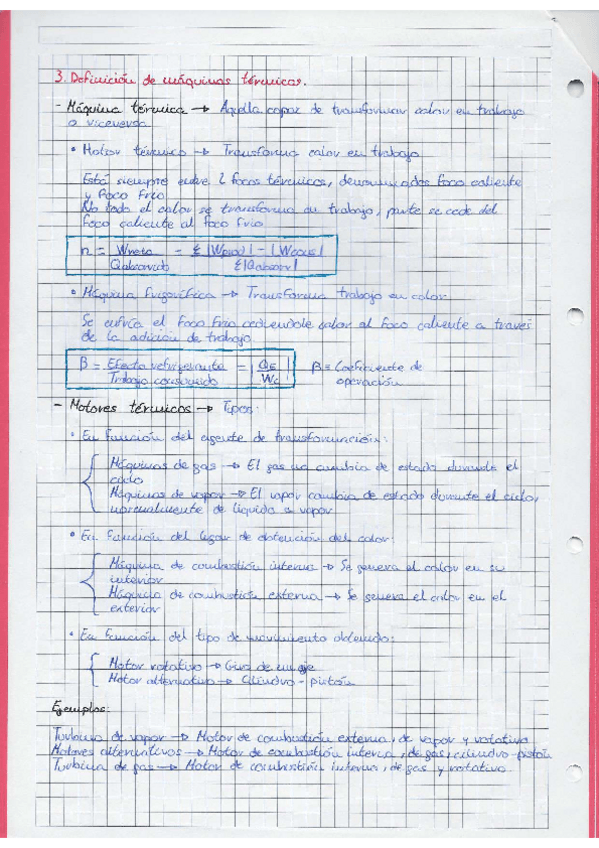 3. Definición de máquinas térmicas.
- Máquina térmica → Aquella capaz de transformar calor en trabajo
o viceversa
• Motor térmico → Transforma calor en trabajo
Está siempre entre 2 focos térmicos, denominados foco caliente
y foco frío
No todo el calor se transforma en trabajo, parte se cede del
foco caliente al foco frío
η = Wneto / Qabsorvido = Σ |Wprod| - |Wcons| / Σ|Qabsorv|
• Máquina frigorífica → Transforma trabajo en calor
Se enfría el foco frío cediendole calor al foco caliente a traves
de la adición de trabajo
β = Efecto refrigerante / Trabajo consumido = | / Wc | β = Coeficiente de
operación
- Motores térmicos → Tipos:
• En función del agente de transformación:
Máquinas de gas → El gas no cambia de estado durante el
ciclo
Máquinas de vapor → El vapor cambia de estado durante el ciclo,
normalmente de líquido a vapor
• En función del lugar de obtención del calor:
Máquina de combustión interna → Se genera el calor en su
interior
Máquina de combustión externa → Se genera el calor en el
exterior
• En función del tipo de movimiento obtenido:
Motor rotativo → Giro de un eje
Motor alternativo → Cilindro-pistón
Ejemplos:
Turbina de vapor → Motor de combustión externa, de vapor y rotativa
Motores alternativos → Motor de combustión interna, de gas, cilindro-pistón
Turbina de gas → Motor de combustión interna, de gas y rotativo